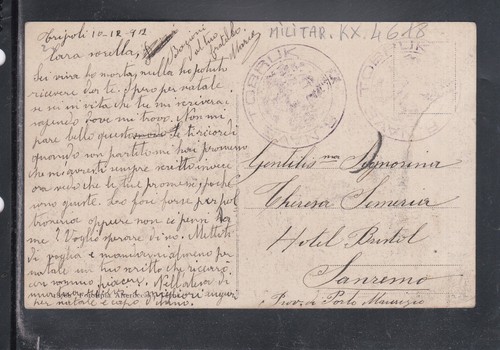 Tripoli 10-12-912
Cara sorella,
Bacioni
dal tuo
fratello
Marco
MILITAR. KX. 4618
TOBRUK
TOBRUK
Sei viva ho morta, nulla ho potuto
ricevere dar te: spero per natale
se sei in vita che tu mi scriverai
sapendo dove mi trovo. Non mi
pare bello questo se ti ricordi
quando son partito mi hai promesso
che mi avresti sempre scritto invece
ora vedo che le tue promesse, poche
sono giuste. Lo fai forse per pol
troneria oppure non ci pensi da
me? Voglio sperare di no. Mettiti
di voglia e mandami almeno per
natale un tuo scritto che
con sommo piacere. Nell'attesa di
migliori auguri
per natale e capo d'anno.
Gentiliss ma Signorina
Theresa
Hotel Bristol
Sanremo
Prov. a Porto Maurizio